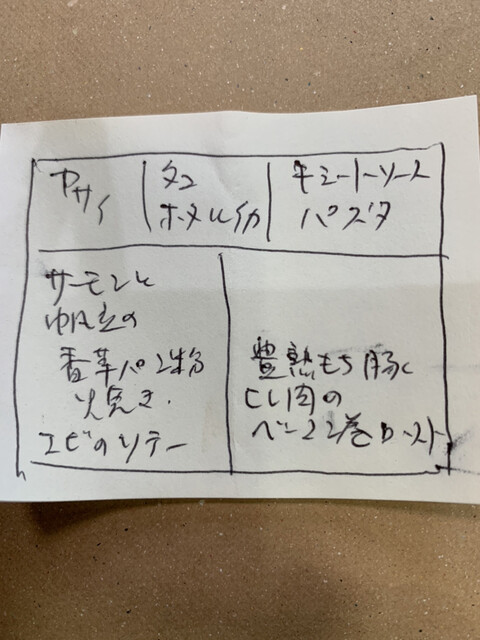 ヤサイ
タコ
ホタルイカ
ミートソース
パスタ
サーモンと
帆立の
香草パン粉
火焼き.
エビのソテー
豊熟もち豚
ヒレ肉の
ベーコン巻ロースト